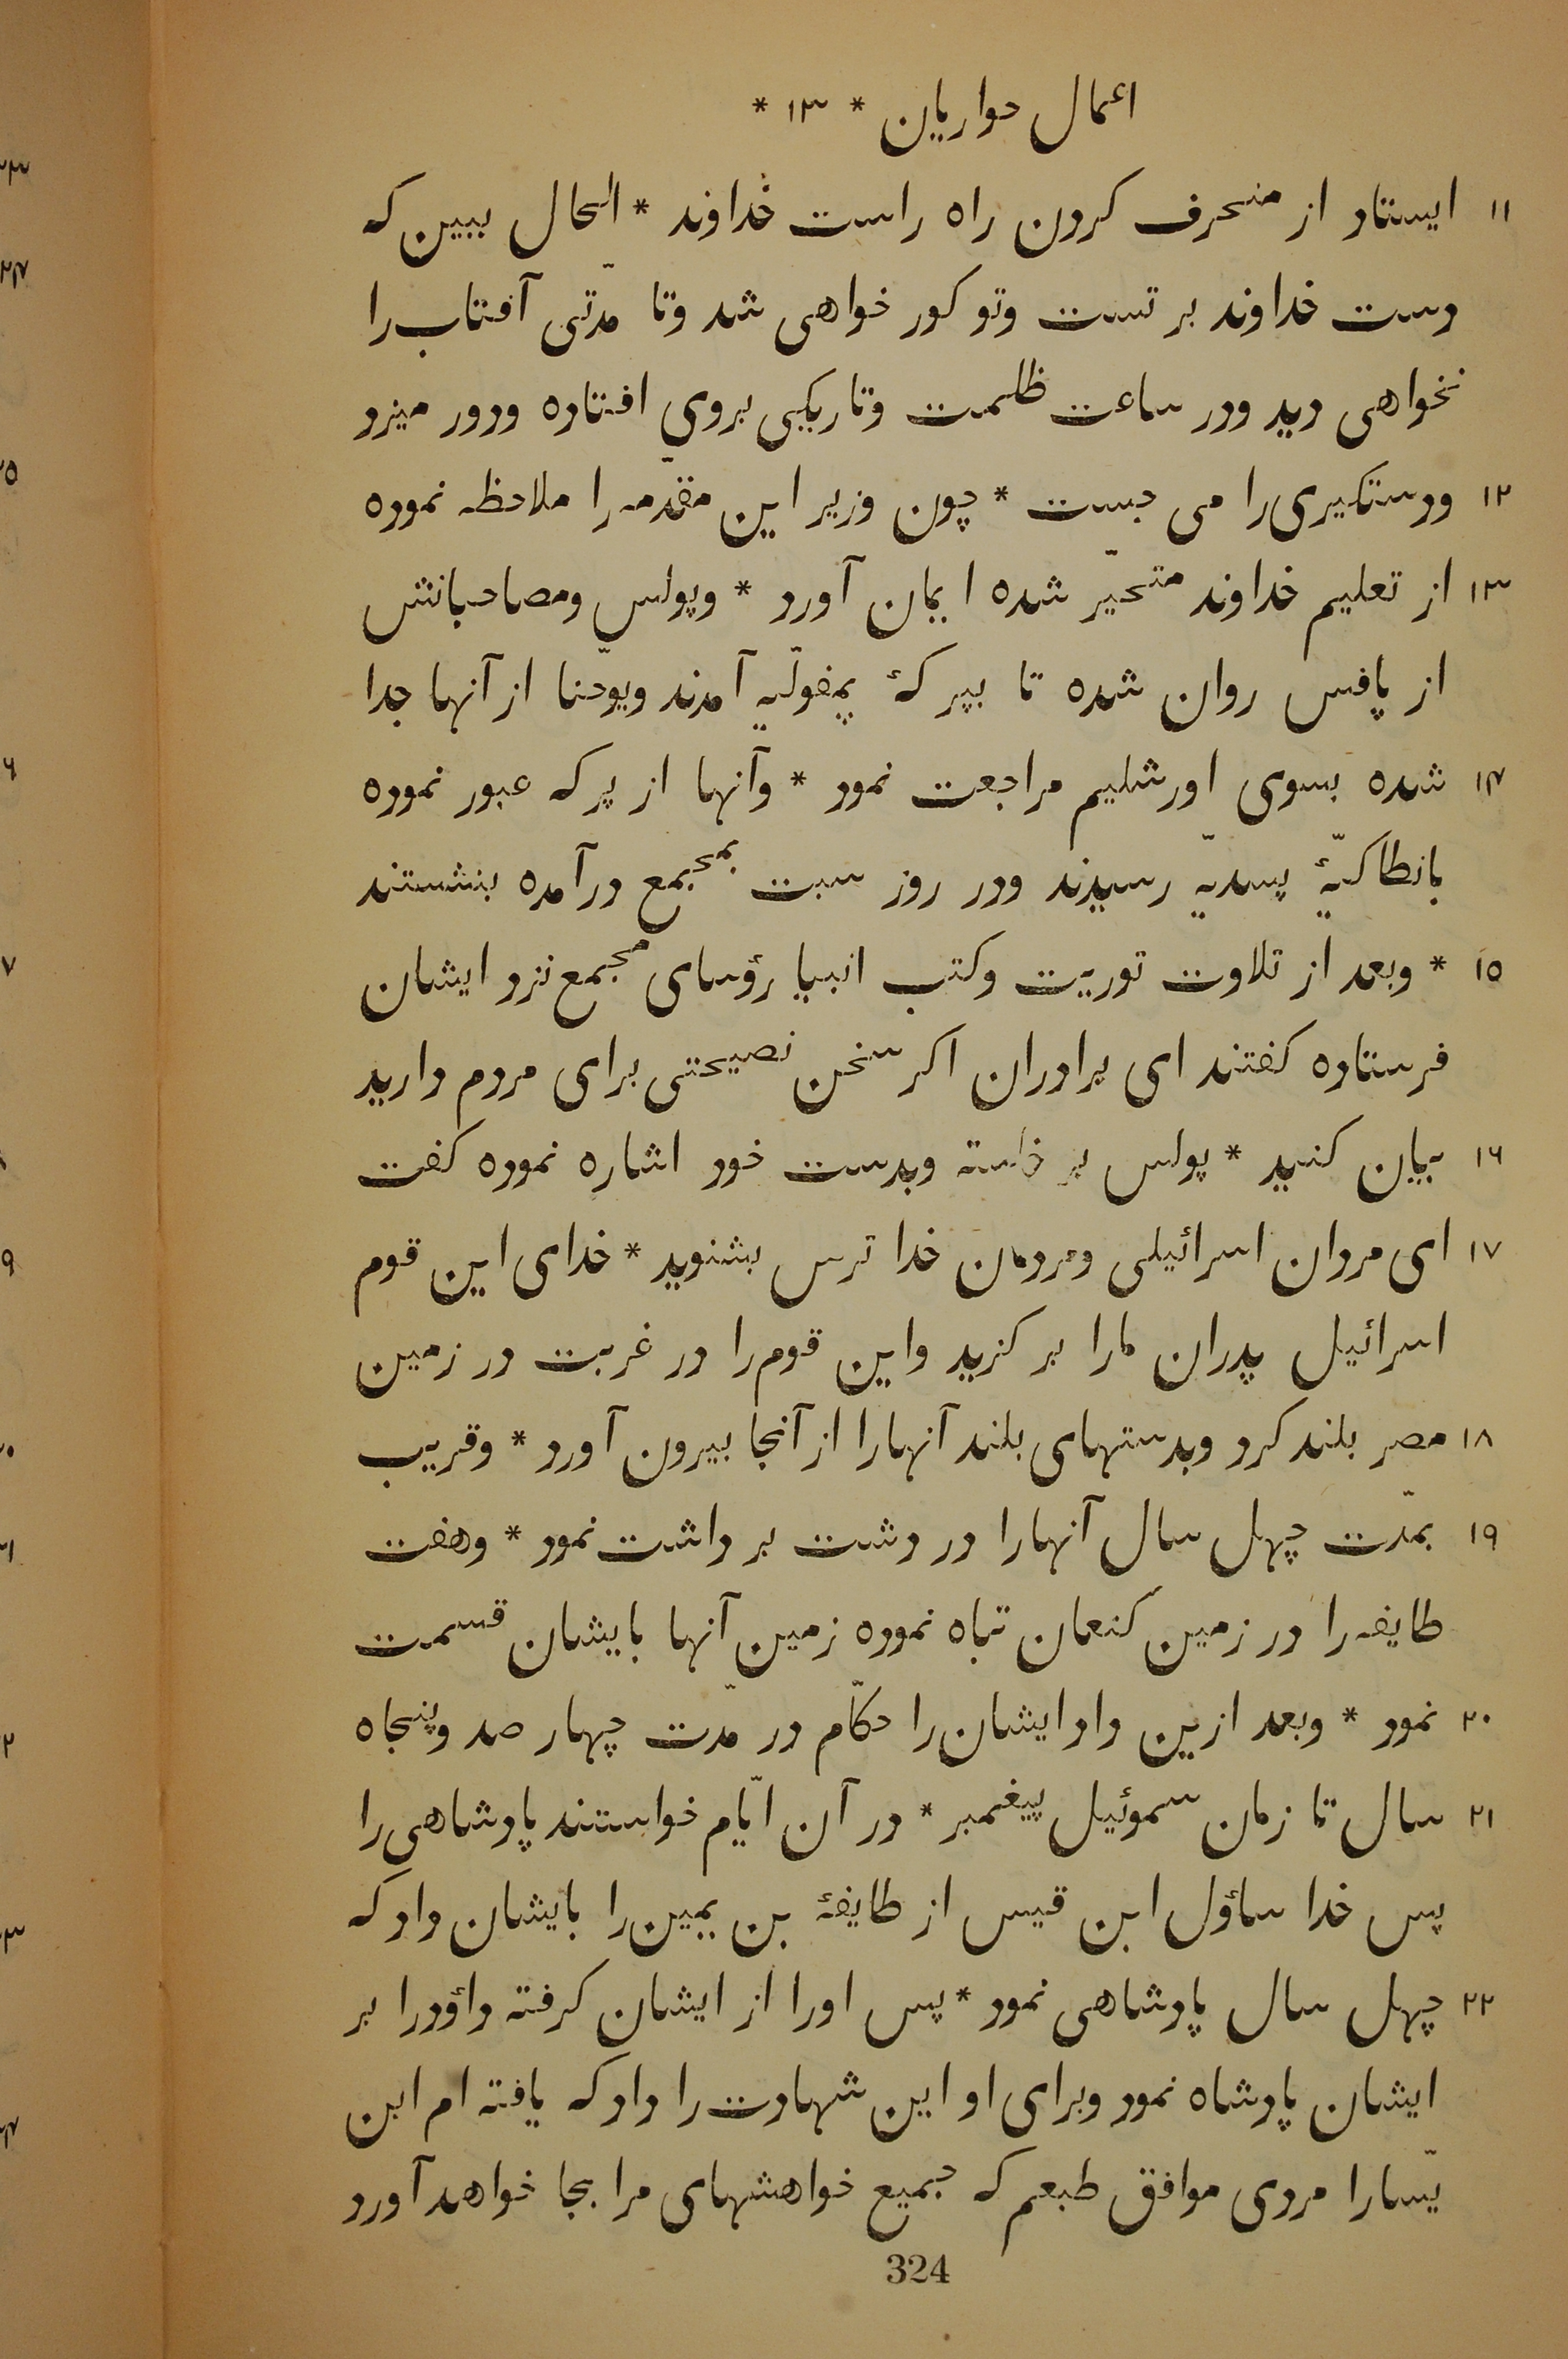 اعمال حواریان * ۱۳ *
۱۱ ایستاد از منحرف کردن راه راست خداوند * الحال ببین که
دست خداوند بر تست وتو کور خواهی شد وتا مدّتی آفتاب را
نخواهی دید ودر ساعت ظلمت وتاریکی بروی افتاده ودور میزد
۱۲ ودستکیری را می جست * چون وزیر این مقدّمه را ملاحظه نموده
۱۳ از تعلیم خداوند متحیّر شده ایمان آورد * وپولس ومصاحبانش
از پافس روان شده تا بپرکهٔ پمفولّیه آمدند ویوحّنا از آنها جدا
۱۴ شده بسوی اورشلیم مراجعت نمود * وآنها از پرکه عبور نموده
بانطاکیّهٔ پسدیّه رسیدند ودر روز سبت بمجمع درآمده بنشستند
۱۵ * وبعد از تلاوت توریت وکتب انبیا رؤسای مجمع نزد ایشان
فرستاده کفتند ای برادران اکر سخن نصیحتی برای مردم دارید
۱۶ بیان کنید * پولس بر خاسته وبدست خود اشاره نموده کفت
۱۷ ای مردان اسرائیلی ومردمان خدا ترس بشنوید * خدای این قوم
اسرائیل پدران مارا بر کزید واین قوم را در غربت در زمین
۱۸ مصر بلند کرد وبدستهای بلند آنهارا از آنجا بیرون آورد * وقریب
۱۹ بمدّت چهل سال آنهارا در دشت بر داشت نمود * وهفت
طایفه را در زمین کنعان تباه نموده زمین آنها بایشان قسمت
۲۰ نمود * وبعد ازین داد ایشان را حکّام در مدّت چهار صد وپنجاه
۲۱ سال تا زمان سموئیل پیغمبر * در آن ایّام خواستند پادشاهی را
پس خدا ساؤل ابن قیس از طایفهٔ بن یمین را بایشان داد که
۲۲ چهل سال پادشاهی نمود * پس اورا از ایشان کرفته داؤد را بر
ایشان پادشاه نمود وبرای او این شهادت را داد که یافته ام ابن
یسّارا مردی موافق طبعم که جمیع خواهشهای مرا بجا خواهد آورد
324